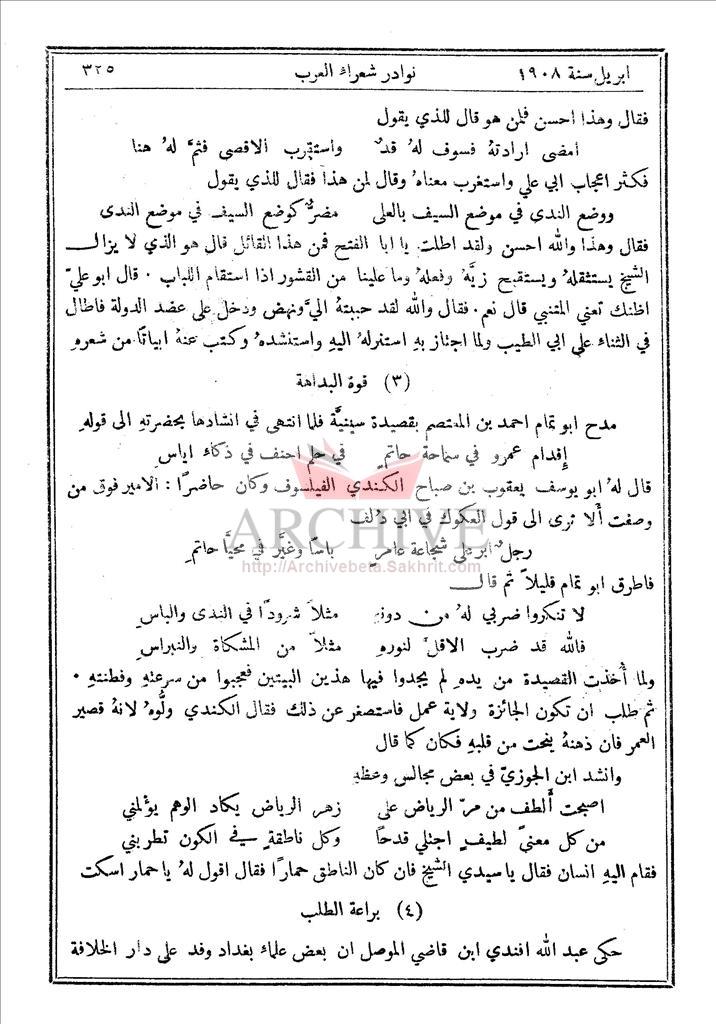 ابريل سنة ١٩٠٨ نوادر شعراء العرب ٣٢٥
فقال وهذا احسن فلمن هو قال للذي يقول
امضى ارادتهُ فسوف لهُ قدٌ واستقرب الاقصى فثمَّ لهُ هنا
فكثر اعجاب ابي علي واستغرب معناهُ وقال لمن هذا فقال للذي يقول
ووضع الندى في موضع السيف بالعلى مضرٌّ كوضع السيف في موضع الندى
فقال وهذا والله احسن ولقد اطلت يا ابا الفتح فمن هذا القائل قال هو الذي لا يزال
الشيخ يستثقلهُ ويستقبح زيَّهُ وفعلهُ وما علينا من القشور اذا استقام اللباب . قال ابو عليّ
اظنك تعني المتنبي قال نعم . فقال والله لقد حببتهُ اليَّ ونهض ودخل على عضد الدولة فاطال
في الثناء على ابي الطيب ولما اجتاز بهِ استنزلهُ اليهِ واستنشدهُ وكتب عنهُ ابياتًا من شعرهِ
(٣) قوة البداهة
مدح ابو تمام احمد بن المعتصم بقصيدة سينيَّة فلما انتهى في انشادها بحضرتهِ الى قولهِ
إقدام عمرو في سماحة حاتمٍ في حلم احنف في ذكاء اياسِ
قال لهُ ابو يوسف يعقوب بن صباح الكندي الفيلسوف وكان حاضرًا : الامير فوق من
وصفت ألا ترى الى قول العكوك في ابي دُلف
ARCHIVE
رجلٌ ابر على شجاعة عامرٍ باسًا وغبَّر في محيَّا حاتمِ
http://Archivebeta.Sakhrit.com
فاطرق ابو تمام قليلاً ثم قال
لا تنكروا ضربي لهُ من دونهِ مثلاً شرودًا في الندى والباسِ
فالله قد ضرب الاقلَّ لنورهِ مثلاً من المشكاة والنبراسِ
ولما أُخذت القصيدة من يدهِ لم يجدوا فيها هذين البيتين فعجبوا من سرعتهِ وفطنتهِ .
ثم طلب ان تكون الجائزة ولاية عمل فاستصغر عن ذلك فقال الكندي ولُّوهُ لانهُ قصير
العمر فان ذهنهُ ينحت من قلبهِ فكان كما قال
وانشد ابن الجوزيّ في بعض مجالس وعظهِ
اصبحت ألطف من مرّ الرياض على زهر الرياض يكاد الوهم يؤلمني
من كل معنىً لطيفٍ اجتلي قدحًا وكل ناطقةٍ في الكون تطربني
فقام اليهِ انسان فقال يا سيدي الشيخ فان كان الناطق حمارًا فقال اقول لهُ يا حمار اسكت
(٤) براعة الطلب
حكى عبد الله افندي ابن قاضي الموصل ان بعض علماء بغداد وفد على دار الخلافة